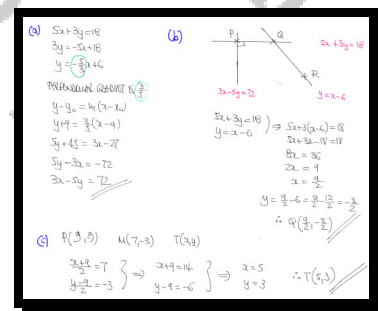 (a) 5x+3y=18
3y=-5x+18
y=-5/3x+6
PERPENDICULAR GRADIENT IS 3/5
y-y₀=m(x-x₀)
y+9=3/5(x-9)
5y+45=3x-27
5y-3x=-72
3x-5y=72
(b)
P Q
5x+3y=18
R
3x-5y=72 y=x-6
5x+3y=18
y=x-6 } ⇒ 5x+3(x-6)=18
5x+3x-18=18
8x=36
2x=9
x=9/2
y=9/2-6=9/2-12/2=-3/2
∴ Q(9/2,-3/2)
(c) P(9,9) M(7,-3) T(x,y)
x+9/2=7
y-9/2=-3 } ⇒ x+9=14
y-9=-6 } ⇒ x=5
y=3 ∴ T(5,3)